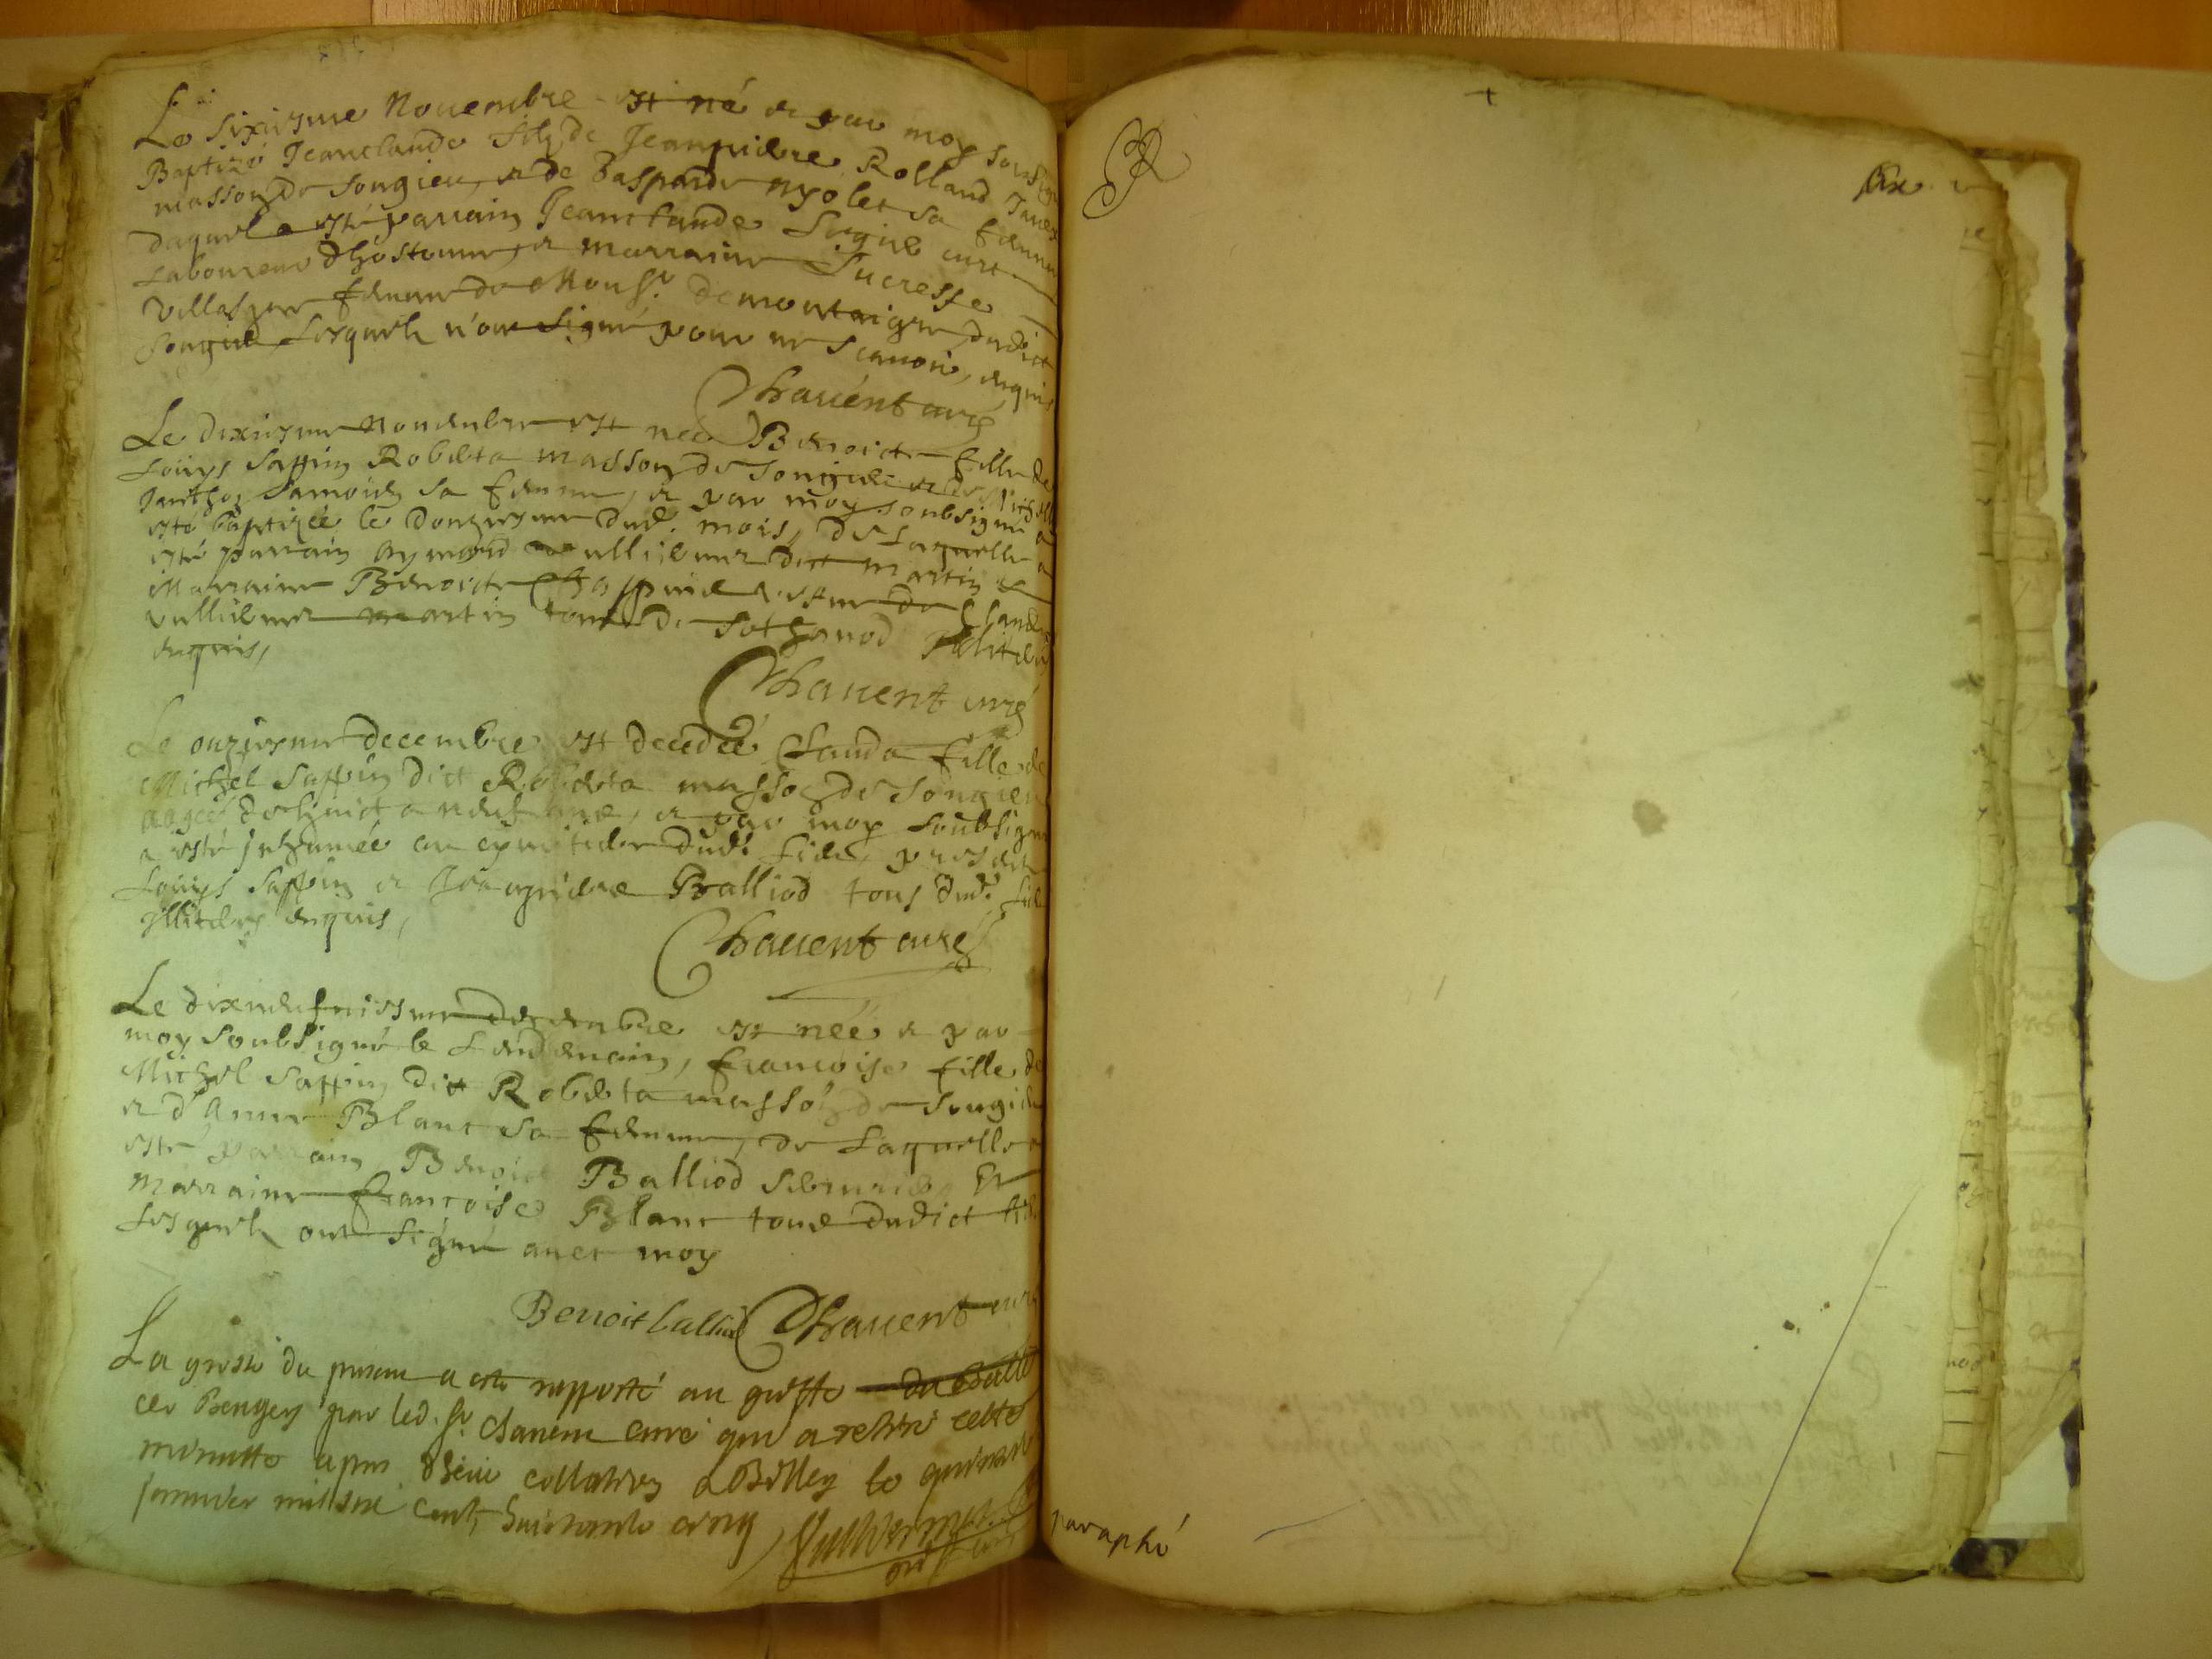 Le sixiesme Novembre est né et par moy soubsig
Baptizé Jeanclaude filz de Jeanpierre Rolland
masson de Songieu, et de Gasparde myolet sa femme
duquel a esté parrain Jeanclaude
Laboureur dhostonne, et marraine Lucresse
femme de Monsr. demontaigne dudict
Songieu, lesquels n'ont signé pour ne scavoir, enquis
Chavent curé
Le dixiesme Novembre est née Benoicte fille de
Louys Sappin Robeta masson de Songieu et de
sa femme, et par moy soubsigné a
esté baptizée le douziesme dud. mois, de laquelle a
esté parrain Aymard vulliemer dict martin et
Marraine Benoicte de Claude
vulliemer martin tous de Sothonod Illiteres
enquis,
Chavent curé
Le onziesme decembre est decedée Clauda fille de
Michel Sappin dict Robeta masson de Songieu
aagée de huict a neuf ans, et par moy soubsigné
a esté inhumée au cymitiere dud. lieu, presents
Louys Sappin et Balliod tous dud. lieu
Illiteres enquis,
Chavent curé
Le dixneufviesme Decembre est née et par
moy soubsigné le lendemain, francoise fille de
Michel Sappin dict Robeta masson de Songieu
et d'Anne Blanc sa femme, de laquelle a
esté parrain Benoict Balliod Et
marraine francoise Blanc tous dudict lieu
lesquels ont signé avec moy
Benoit balliod Chavent curé
La grosse du present a esté rapporté au greffe du Balliage
de Beugey par led. sr. Chavent curé qui a retiré cette
minutte apres deue collation a Belley le
janvier mil six cent huictante cinq
paraphé